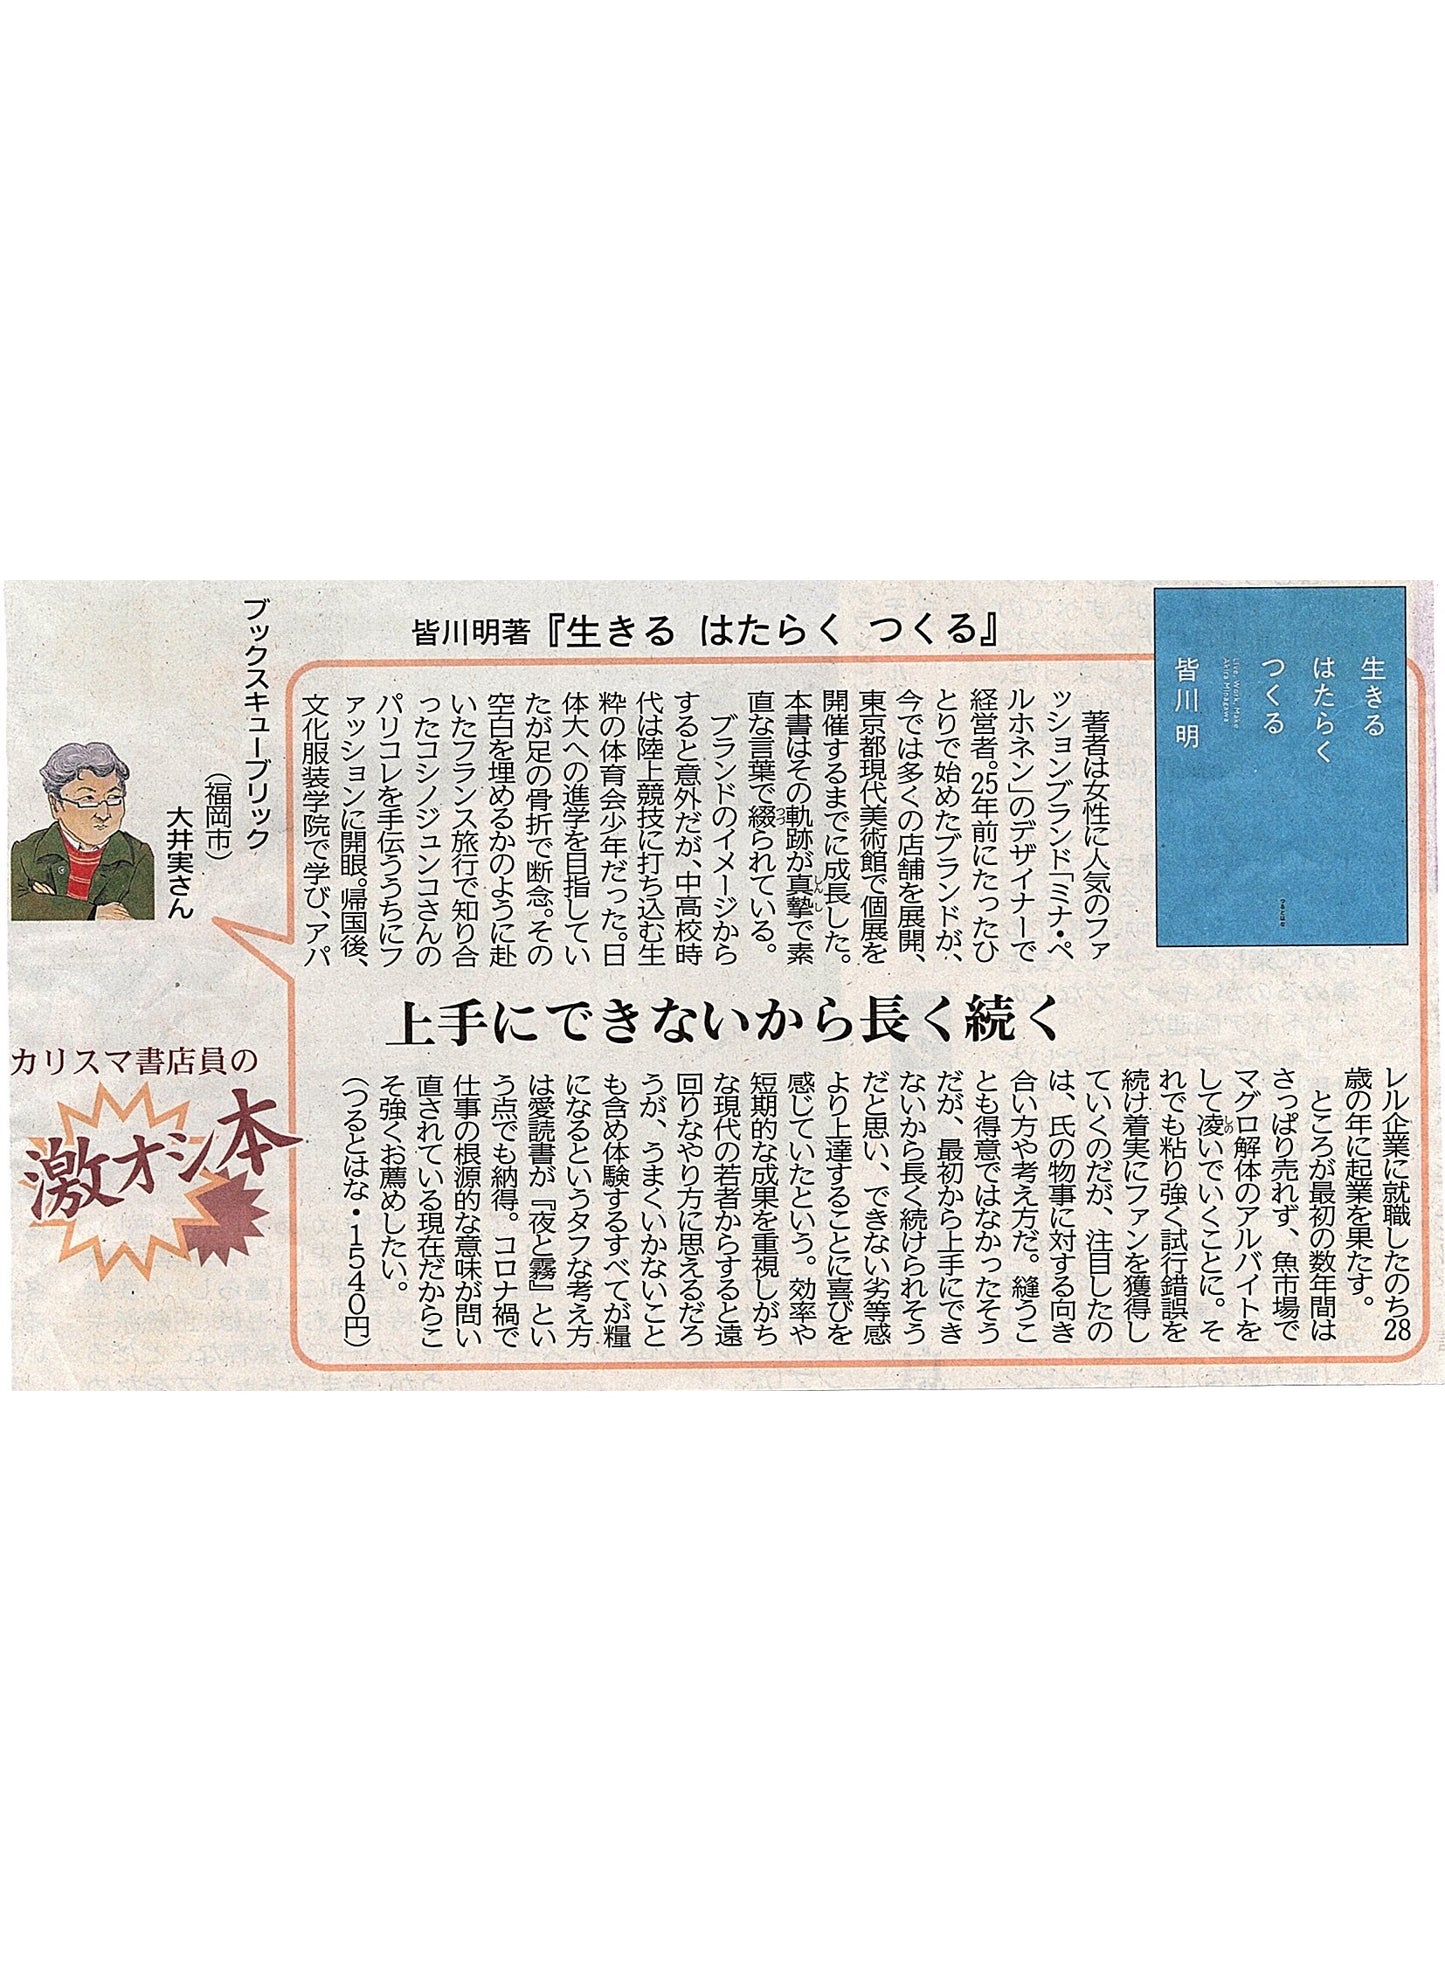 生きる
はたらく
つくる
Live, Work, Make
Akira Minagawa
皆川 明
つるとはな
皆川明著『生きる はたらく つくる』
著者は女性に人気のファ
ッションブランド「ミナ・ペ
ルホネン」のデザイナーで
経営者。25年前にたったひ
とりで始めたブランドが、
今では多くの店舗を展開、
東京都現代美術館で個展を
開催するまでに成長した。
本書はその軌跡が真摯(しんし)で素
直な言葉で綴(つづ)られている。
ブランドのイメージから
すると意外だが、中高校時
代は陸上競技に打ち込む生
粋の体育会少年だった。日
体大への進学を目指してい
たが足の骨折で断念。その
空白を埋めるかのように赴
いたフランス旅行で知り合
ったコシノジュンコさんの
パリコレを手伝ううちにフ
ァッションに開眼。帰国後、
文化服装学院で学び、アパ
上手にできないから長く続く
レル企業に就職したのち28
歳の年に起業を果たす。
ところが最初の数年間は
さっぱり売れず、魚市場で
マグロ解体のアルバイトを
して凌(しの)いでいくことに。そ
れでも粘り強く試行錯誤を
続け着実にファンを獲得し
ていくのだが、注目したの
は、氏の物事に対する向き
合い方や考え方だ。縫うこ
とも得意ではなかったそう
だが、最初から上手にでき
ないから長く続けられそう
だと思い、できない劣等感
より上達することに喜びを
感じていたという。効率や
短期的な成果を重視しがち
な現代の若者からすると遠
回りなやり方に思えるだろ
うが、うまくいかないこと
も含め体験するすべてが糧
になるというタフな考え方
は愛読書が『夜と霧』とい
う点でも納得。コロナ禍で
仕事の根源的な意味が問い
直されている現在だからこ
そ強くお薦めしたい。
（つるとはな・1540円）
ブックスキューブリック
（福岡市）
大井実さん
カリスマ書店員の
激オシ本